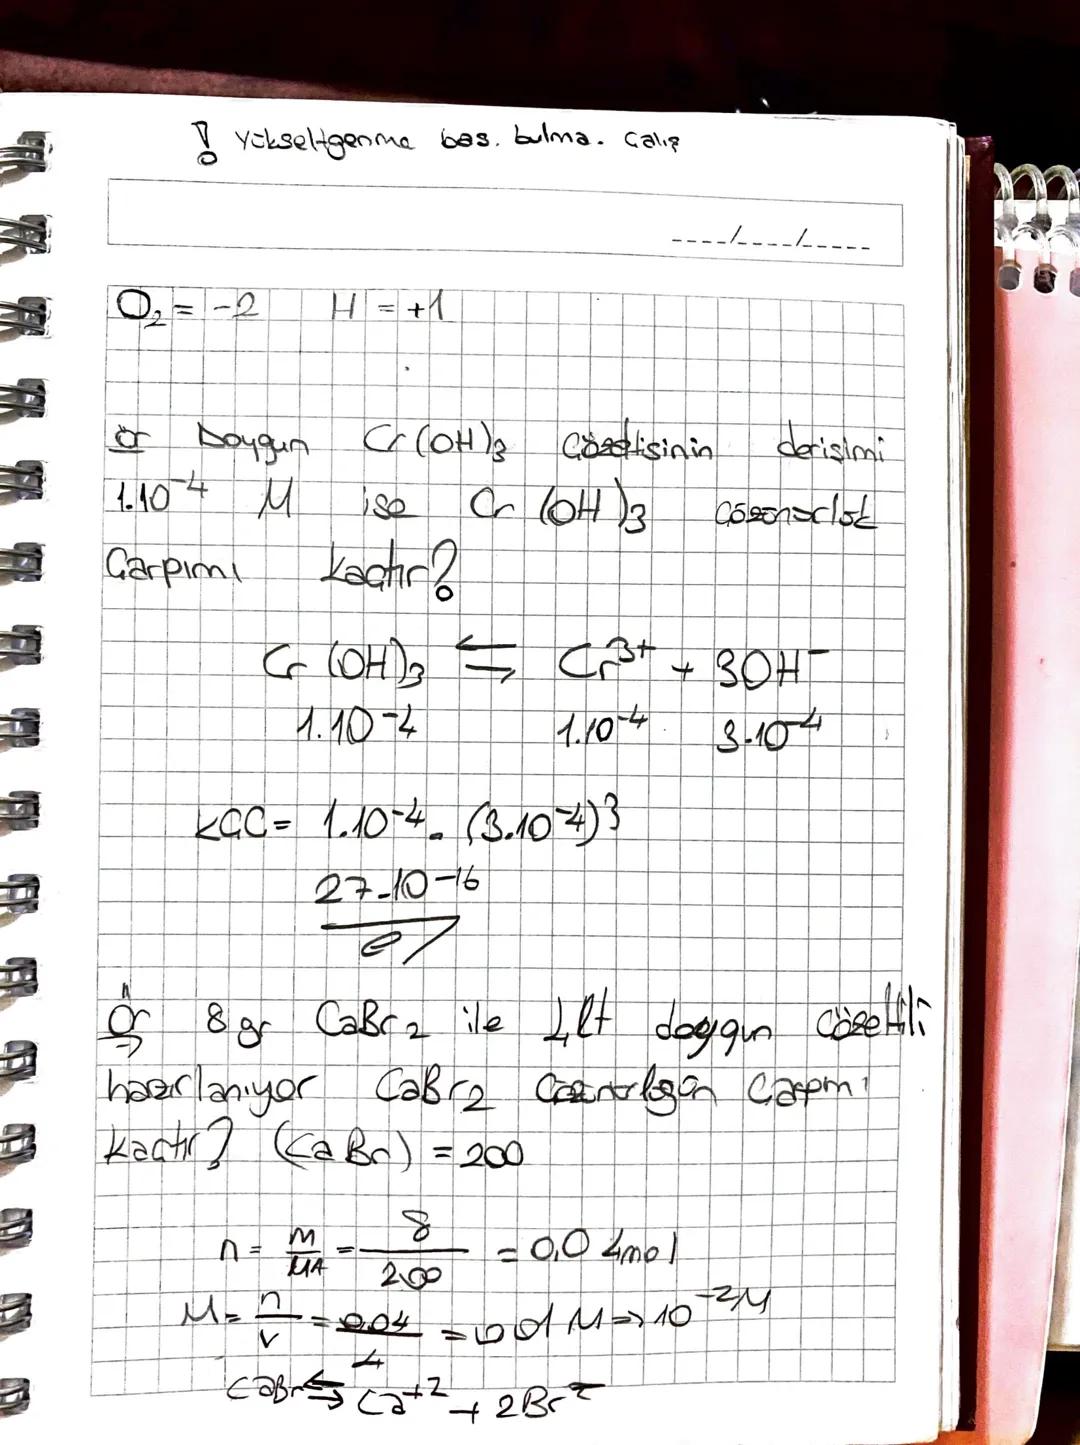 ! Yükseltgenme bas. bulma. Çalış
----/----/-----
O₂ = -2 H = +1
ör Doygun Cr(OH)₃ Çözeltisinin derişimi
1.10⁻⁴ M ise Cr (OH)₃ çözünürlük
Çarpımı kaçtır?
Cr (OH)₃ ⇆ Cr³⁺ + 3OH⁻
1.10⁻⁴ 1.10⁻⁴ 3.10⁻⁴
KÇÇ = 1.10⁻⁴ . (3.10⁻⁴)³
27.10⁻¹⁶
Ör 8 gr CaBr₂ ile 4 lt doygun çözeltili
hazırlanıyor CaBr₂ Çarpımı
kaçtır? (CaBr) = 200
n = m/MA = 8/200 = 0,04 mol
M = n/v = 0.04/4 = 0,01 M => 10⁻² M
CaBr ⇆ Ca⁺² + 2Br⁻